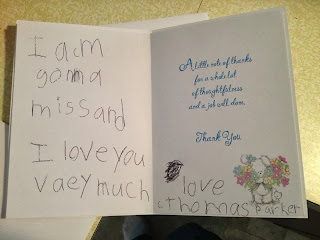 I am
gonna
miss and
I love you
vaey much
A little note of thanks
for a whole lot
of thoughtfulness
and a job well done.
Thank You
love
thomas parker